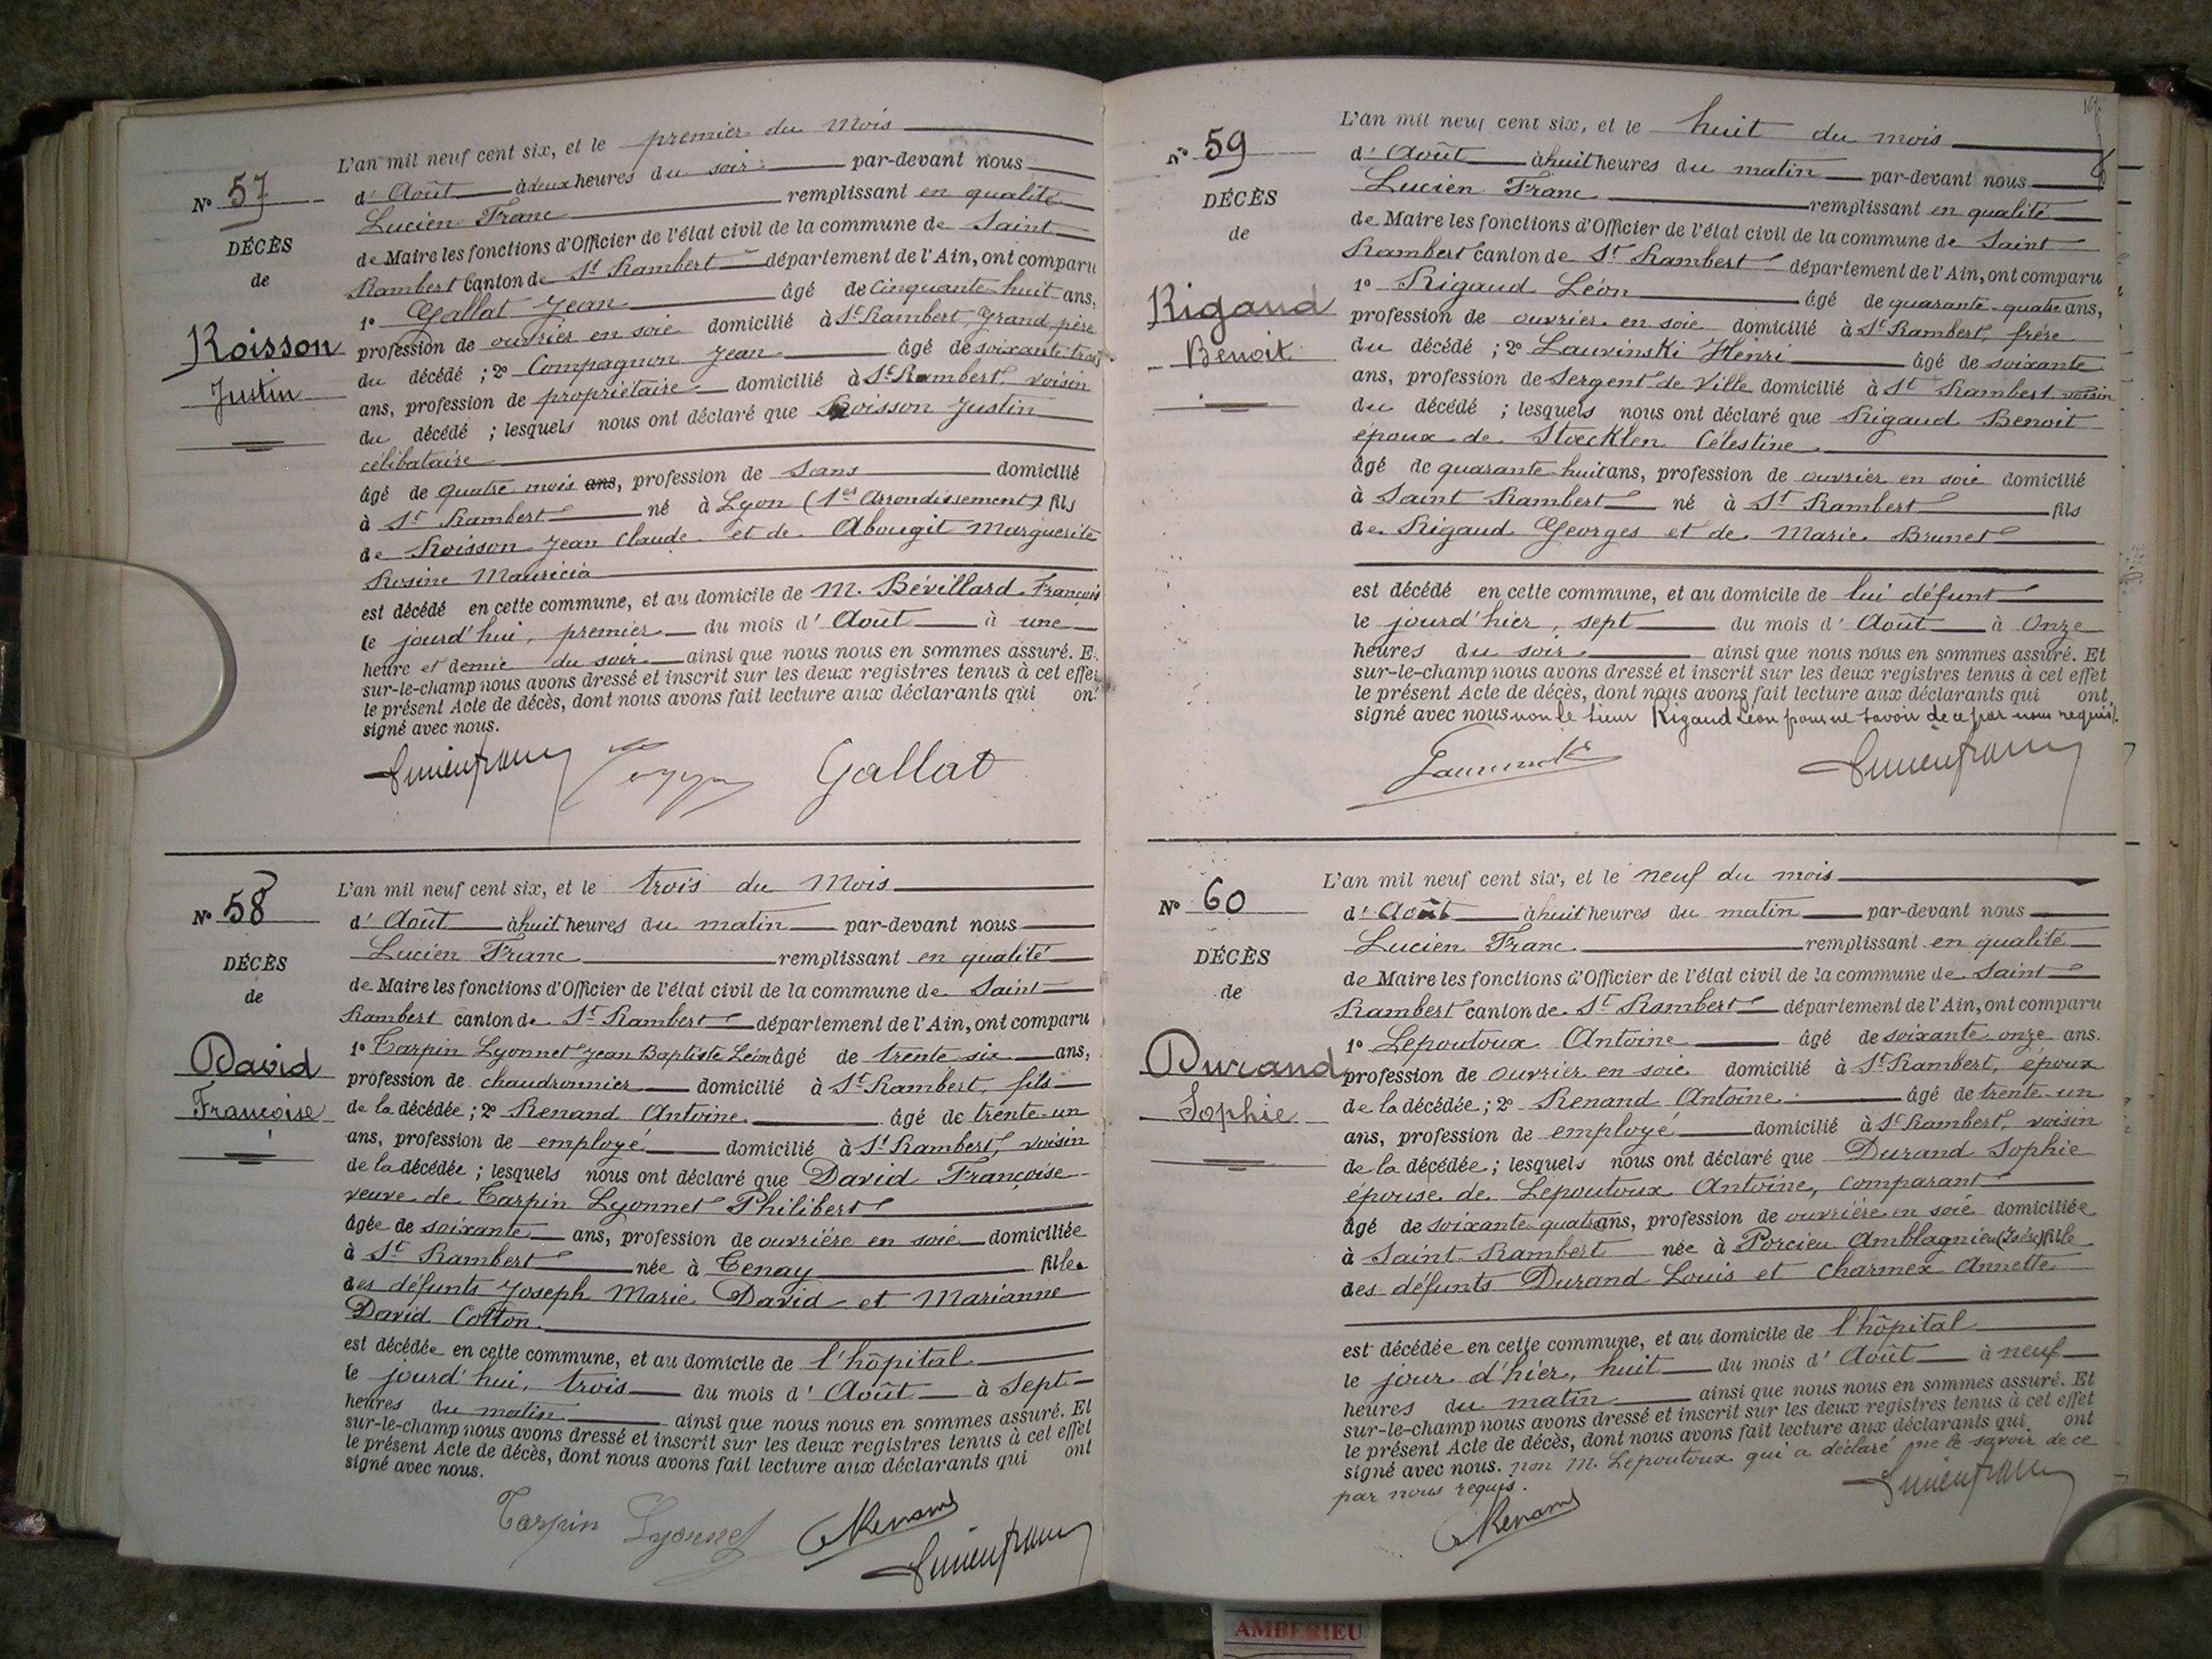 N° 57
DÉCÈS
de
Roisson
Justin
L'an mil neuf cent six, et le premier du mois
d'Août à deux heures du soir par-devant nous
Lucien Franc remplissant en qualité
de Maire les fonctions d'Officier de l'état civil de la commune de Saint
Rambert Canton de St Rambert département de l'Ain, ont comparu
1° Gallat Jean âgé de cinquante-huit ans,
profession de ouvrier en soie domicilié à St Rambert, grand père
du décédé ; 2° Compagnon Jean âgé de soixante trois
ans, profession de propriétaire domicilié à St Rambert, voisin
du décédé ; lesquels nous ont déclaré que Roisson Justin
célibataire
âgé de quatre mois ans, profession de sans domicilié
à St Rambert né à Lyon (1er Arrondissement) fils
de Roisson Jean Claude et de Abougit Marguerite
Rosine Mauricia
est décédé en cette commune, et au domicile de M. Bévillard François
le jourd'hui, premier du mois d'Août à une
heure et demie du soir ainsi que nous nous en sommes assuré. E
sur-le-champ nous avons dressé et inscrit sur les deux registres tenus à cet effet
le présent Acte de décès, dont nous avons fait lecture aux déclarants qui ont
signé avec nous.
Lucien Franc Gallat
N° 58
DÉCÈS
de
David
Françoise
L'an mil neuf cent six, et le trois du mois
d'Août à huit heures du matin par-devant nous
Lucien Franc remplissant en qualité
de Maire les fonctions d'Officier de l'état civil de la commune de Saint
Rambert canton de St Rambert département de l'Ain, ont comparu
1° Tarpin Lyonnet Jean Baptiste Léon âgé de trente six ans,
profession de chaudronnier domicilié à St Rambert, fils
de la décédée ; 2° Renand Antoine âgé de trente-un
ans, profession de employé domicilié à St Rambert, voisin
de la décédée ; lesquels nous ont déclaré que David Françoise
veuve de Tarpin Lyonnet Philibert
âgée de soixante ans, profession de ouvrière en soie domiciliée
à St Rambert née à Tenay fille
des défunts Joseph Marie David et Marianne
David Cotton
est décédée en cette commune, et au domicile de l'hôpital
le jourd'hui, trois du mois d'Août à sept
heures du matin ainsi que nous nous en sommes assuré. Et
sur-le-champ nous avons dressé et inscrit sur les deux registres tenus à cet effet
le présent Acte de décès, dont nous avons fait lecture aux déclarants qui ont
signé avec nous.
Tarpin Lyonnet Renand
Lucien Franc
N° 59
DÉCÈS
de
Rigaud
Benoit
L'an mil neuf cent six, et le huit du mois
d'Août à huit heures du matin par-devant nous
Lucien Franc remplissant en qualité
de Maire les fonctions d'Officier de l'état civil de la commune de Saint
Rambert canton de St Rambert département de l'Ain, ont comparu
1° Rigaud Léon âgé de quarante-quatre ans,
profession de ouvrier en soie domicilié à St Rambert, frère
du décédé ; 2° Lauvinski Henri âgé de soixante
ans, profession de Sergent de Ville domicilié à St Rambert voisin
du décédé ; lesquels nous ont déclaré que Rigaud Benoit
époux de Stœcklen Célestine
âgé de quarante-huit ans, profession de ouvrier en soie domicilié
à Saint Rambert né à St Rambert fils
de Rigaud Georges et de Marie Brunet
est décédé en cette commune, et au domicile de lui défunt
le jourd'hier, sept du mois d'Août à onze
heures du soir ainsi que nous nous en sommes assuré. Et
sur-le-champ nous avons dressé et inscrit sur les deux registres tenus à cet effet
le présent Acte de décès, dont nous avons fait lecture aux déclarants qui ont
signé avec nous non le sieur Rigaud Léon pour ne savoir de ce par nous requis.
Lucien Franc
N° 60
DÉCÈS
de
Durand
Sophie
L'an mil neuf cent six, et le neuf du mois
d'Août à huit heures du matin par-devant nous
Lucien Franc remplissant en qualité
de Maire les fonctions d'Officier de l'état civil de la commune de Saint
Rambert canton de St Rambert département de l'Ain, ont comparu
1° Lepoutoux Antoine âgé de soixante onze ans.
profession de ouvrier en soie domicilié à St Rambert, époux
de la décédée ; 2° Renand Antoine âgé de trente-un
ans, profession de employé domicilié à St Rambert, voisin
de la décédée ; lesquels nous ont déclaré que Durand Sophie
épouse de Lepoutoux Antoine, comparant
âgé de soixante-quatre ans, profession de ouvrière en soie domiciliée
à Saint-Rambert née à Porcieu Amblagnieu (Isère) fille
des défunts Durand Louis et Charmex Annette
est décédée en cette commune, et au domicile de l'hôpital
le jour d'hier, huit du mois d'Août à neuf
heures du matin ainsi que nous nous en sommes assuré. Et
sur-le-champ nous avons dressé et inscrit sur les deux registres tenus à cet effet
le présent Acte de décès, dont nous avons fait lecture aux déclarants qui ont
signé avec nous. non M. Lepoutoux qui a déclaré ne le savoir de ce
par nous requis.
Renand Lucien Franc
AMBERIEU